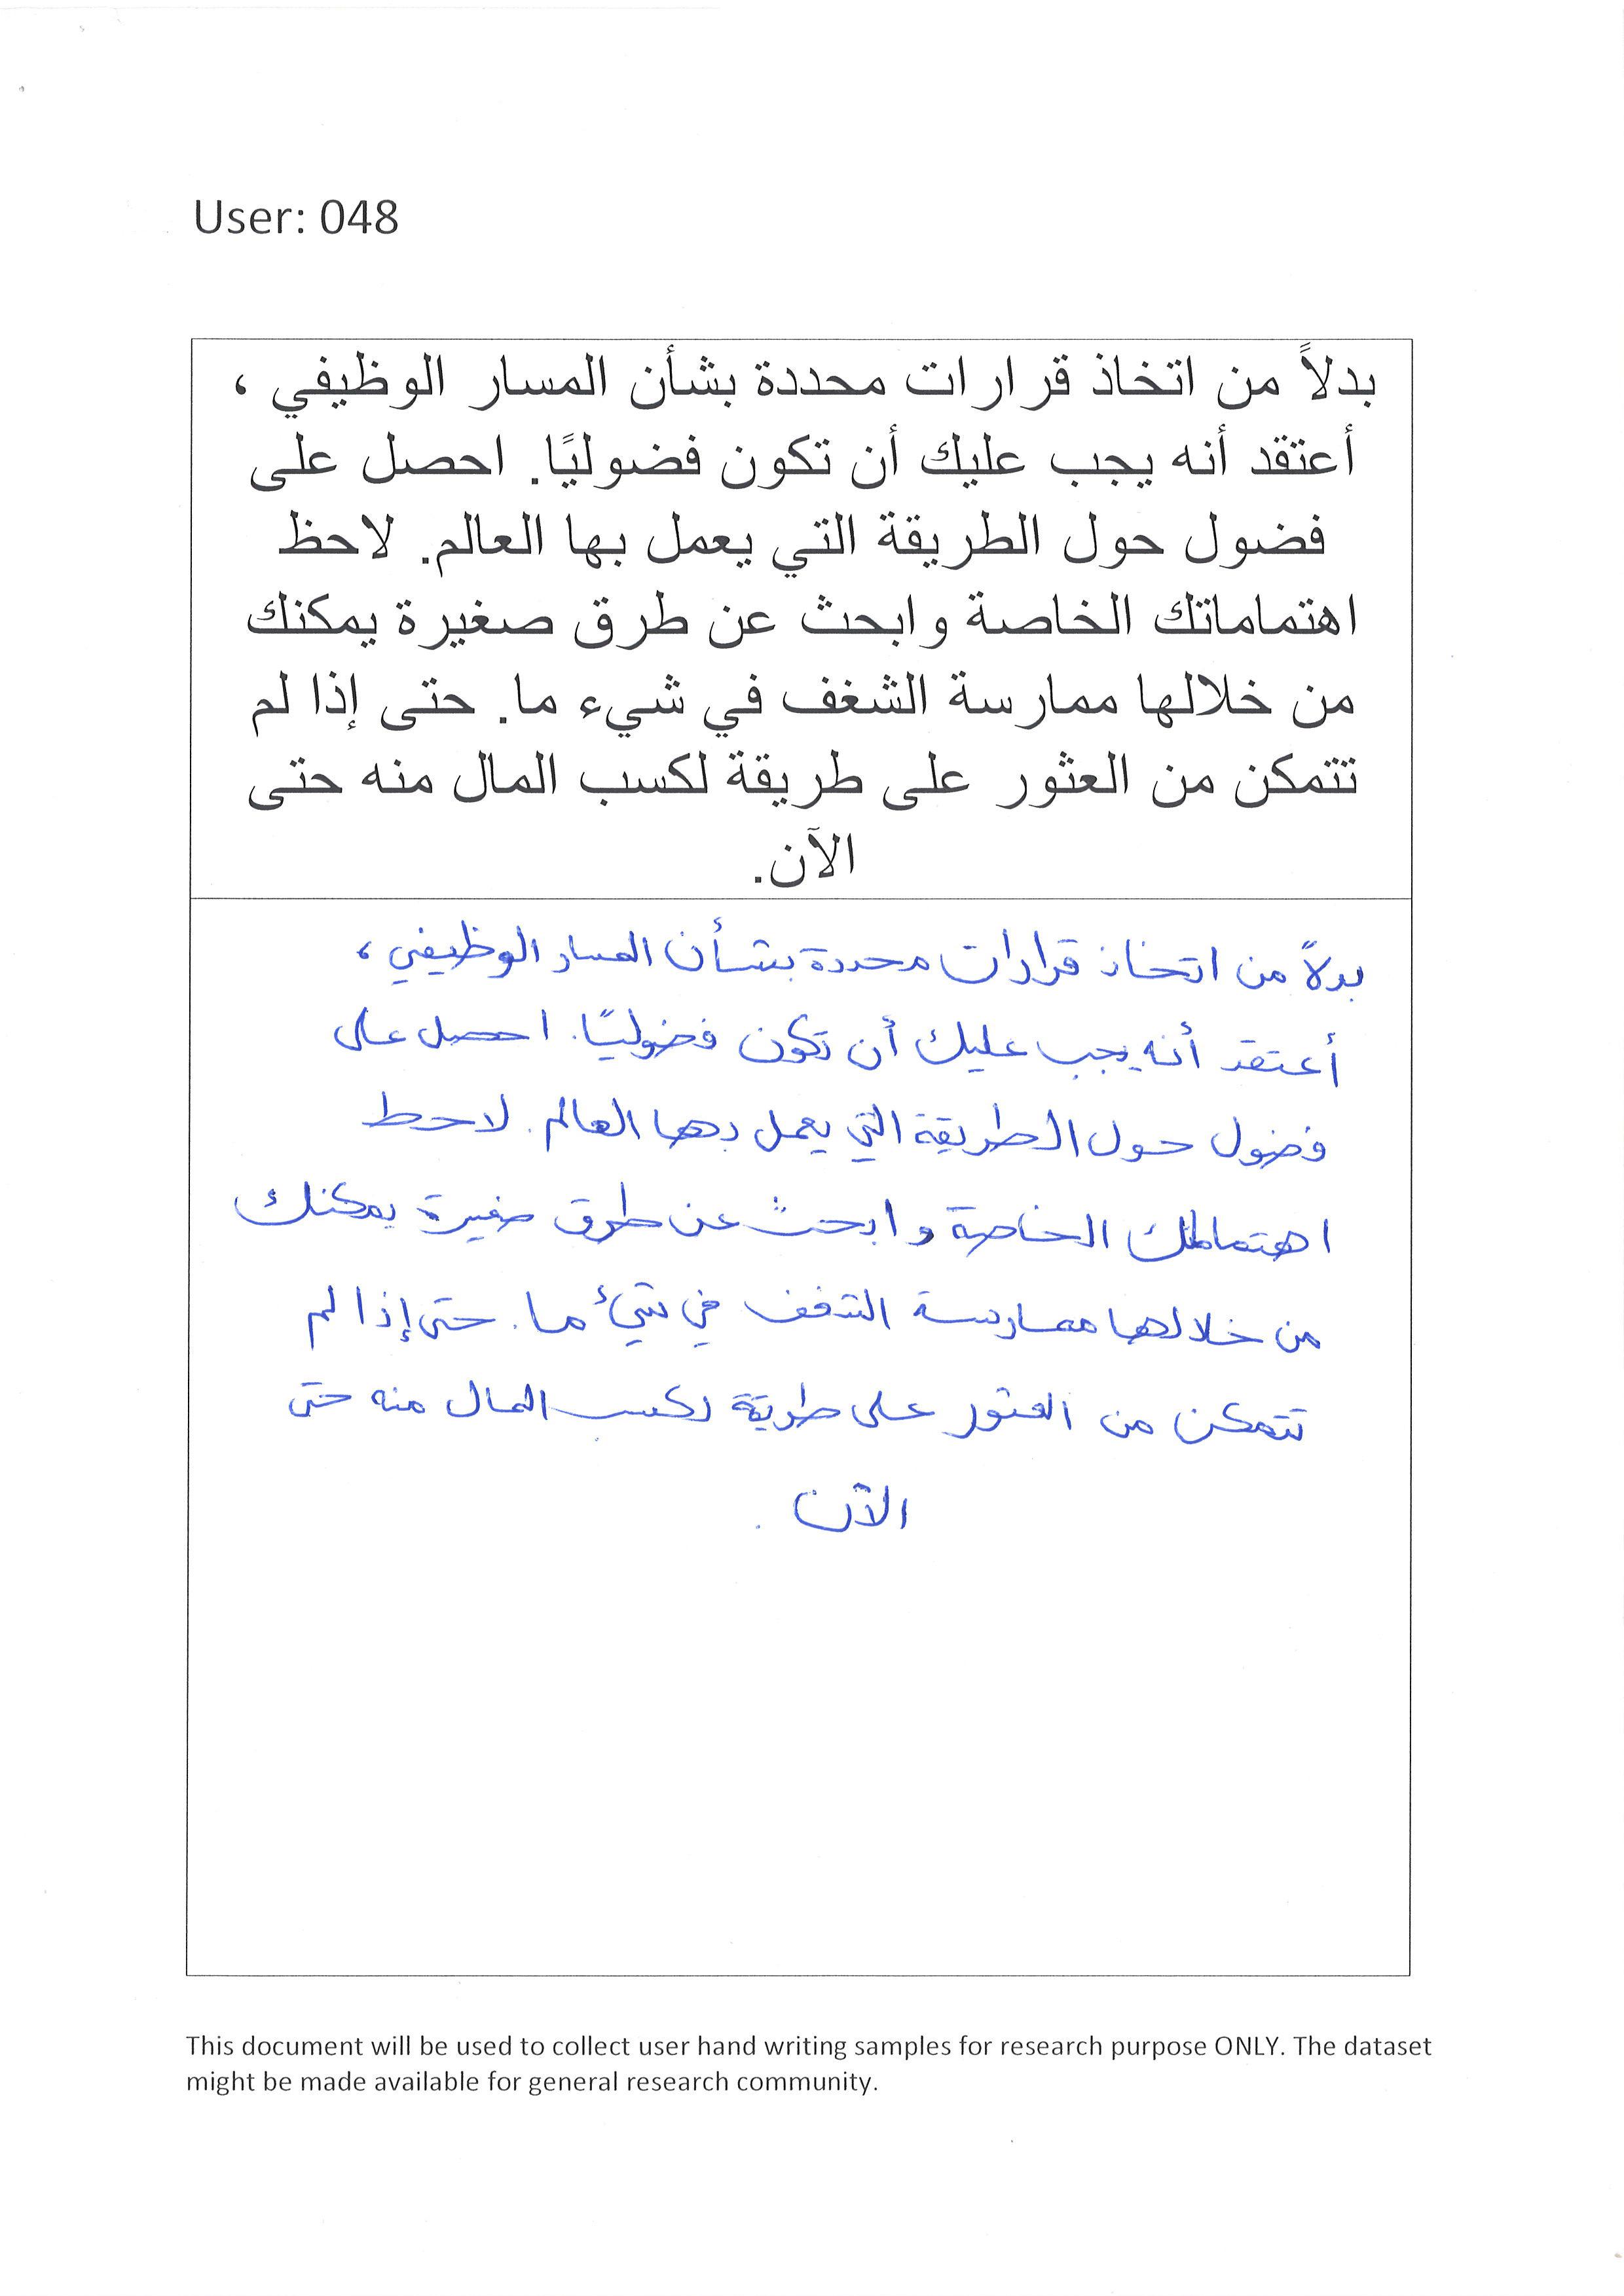 User: 048
بدلاً من اتخاذ قرارات محددة بشأن المسار الوظيفي ،
أعتقد أنه يجب عليك أن تكون فضوليًا. احصل على
فضول حول الطريقة التي يعمل بها العالم. لاحظ
اهتماماتك الخاصة وابحث عن طرق صغيرة يمكنك
من خلالها ممارسة الشغف في شيء ما. حتى إذا لم
تتمكن من العثور على طريقة لكسب المال منه حتى
الآن.
بدلاً من اتخاذ قرارات محددة بشأن المسار الوظيفي ،
أعتقد أنه يجب عليك أن تكون فضوليًا. احصل على
فضول حول الطريقة التي يعمل بها العالم. لاحط
الخاصة وابحث عن طرق صغيرة يمكنك
من خلالها ممارسة الشغف في شيئ ما. حتى إذا لم
تتمكن من العثور على طريقة لكسب المال منه حتى
الآن .
This document will be used to collect user hand writing samples for research purpose ONLY. The dataset
might be made available for general research community.